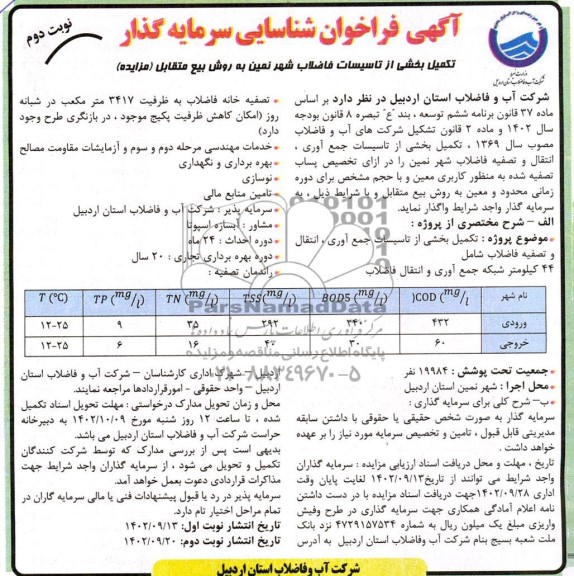 نوبت دوم
آگهی فراخوان شناسایی سرمایه گذار
تکمیل بخشی از تاسیسات فاضلاب شهر نمین به روش بیع متقابل (مزایده)
شرکت آب و فاضلاب استان اردبیل در نظر دارد بر اساس
ماده ۳۷ قانون برنامه ششم توسعه ، بند "ع" تبصره ۸ قانون بودجه
سال ۱۴۰۲ و ماده ۲ قانون تشکیل شرکت های آب و فاضلاب
مصوب سال ۱۳۶۹ ، تکمیل بخشی از تاسیسات جمع آوری ،
انتقال و تصفیه فاضلاب شهر نمین را در ازای تخصیص پساب
تصفیه شده به منظور کاربری معین و با حجم مشخص برای دوره
زمانی محدود و معین به روش بیع متقابل و با شرایط ذیل ، به
سرمایه گذار واجد شرایط واگذار نماید.
الف – شرح مختصری از پروژه :
• موضوع پروژه : تکمیل بخشی از تاسیسات جمع آوری ، انتقال
و تصفیه فاضلاب شامل
۴۴ کیلومتر شبکه جمع آوری و انتقال فاضلاب
• تصفیه خانه فاضلاب به ظرفیت ۳۴۱۷ متر مکعب در شبانه
روز (امکان کاهش ظرفیت پکیج موجود ، در بازنگری طرح وجود
دارد)
• خدمات مهندسی مرحله دوم و سوم و آزمایشات مقاومت مصالح
• بهره برداری و نگهداری
• نوسازی
• تامین منابع مالی
• سرمایه پذیر : شرکت آب و فاضلاب استان اردبیل
• مشاور : آبسازه اسپوتا
• دوره احداث : ۲۴ ماه
• دوره بهره برداری تجاری : ۲۰ سال
• راندمان تصفیه :
نام شهر COD (mg/l) BOD5 (mg/l) TSS (mg/l) TN (mg/l) TP (mg/l) T (°C)
ورودی ۴۳۲ ۳۴۰ ۲۹۲ ۳۵ ۹ ۱۲-۲۵
خروجی ۶۰ ۳۰ ۴۰ ۱۶ ۶ ۱۲-۲۵
ParsNamadData
پایگاه اطلاع رسانی مناقصه و مزایده
۰۲۱-۸۸۳۴۹۶۷۰-۵
• جمعیت تحت پوشش : ۱۹۹۸۴ نفر
• محل اجرا : شهر نمین استان اردبیل
ب – شرح کلی برای سرمایه گذاری :
سرمایه گذار به صورت شخص حقیقی یا حقوقی با داشتن سابقه
مدیریتی قابل قبول ، تامین و تخصیص سرمایه مورد نیاز را بر عهده
خواهد داشت .
تاریخ ، مهلت و محل دریافت اسناد ارزیابی مزایده : سرمایه گذاران
واجد شرایط می توانند از تاریخ ۱۴۰۲/۰۹/۱۳ لغایت پایان وقت
اداری ۱۴۰۲/۰۹/۲۸ جهت دریافت اسناد مزایده با در دست داشتن
نامه اعلام آمادگی همکاری جهت سرمایه گذاری در طرح وفیش
واریزی مبلغ یک میلون ریال به شماره ۴۷۲۹۱۵۷۵۳۴ نزد بانک
ملت شعبه بسیج بنام شرکت آب و فاضلاب استان اردبیل به آدرس
اردبیل – شهرک اداری کارشناسان – شرکت آب و فاضلاب استان
اردبیل – واحد حقوقی - امورقراردادها مراجعه نمایند.
محل و زمان تحویل مدارک درخواستی : مهلت تحویل اسناد تکمیل
شده ، تا ساعت ۱۲ روز شنبه مورخ ۱۴۰۲/۱۰/۰۹ به دبیرخانه
حراست شرکت آب و فاضلاب استان اردبیل می باشد.
بدیهی است پس از بررسی مدارک که توسط شرکت کنندگان
تکمیل و تحویل می شود ، از سرمایه گذاران واجد شرایط جهت
مذاکرات قراردادی دعوت بعمل خواهد آمد.
سرمایه پذیر در رد یا قبول پیشنهادات فنی یا مالی سرمایه گاران در
تمام مراحل اختیار تام دارد.
تاریخ انتشار نوبت اول: ۱۴۰۲/۰۹/۱۳
تاریخ انتشار نوبت دوم: ۱۴۰۲/۰۹/۲۰
شرکت آب وفاضلاب استان اردبیل